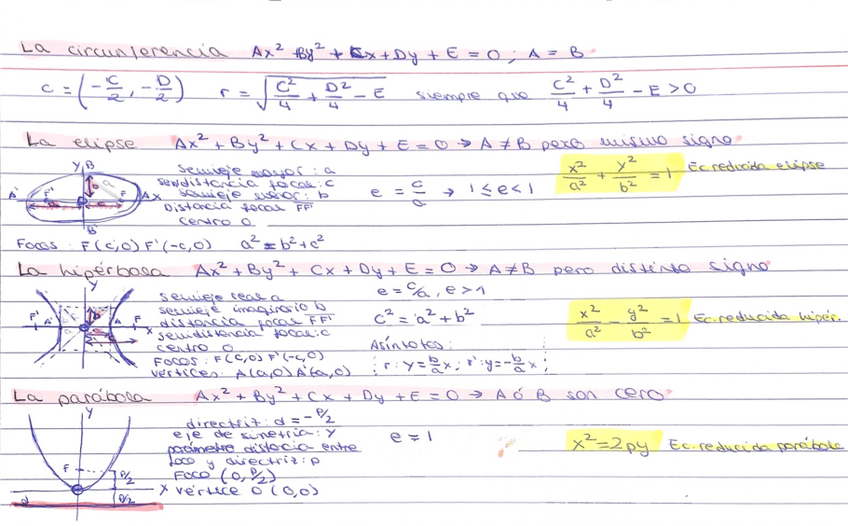 La circunferencia Ax² + By² + Cx + Dy + E = 0 ; A = B
C = (-C/2, -D/2) r = √(C²/4 + D²/4 - E) siempre que C²/4 + D²/4 - E > 0
La elipse Ax² + By² + Cx + Dy + E = 0 → A ≠ B pero mismo signo
Y B
A' F' b a F A X
B'
semieje mayor: a
semidistancia focal: c
semieje menor: b
Distancia focal FF'
centro O
e = c/a → 1 ≤ e < 1
x²/a² + y²/b² = 1 Ec reducida elipse
Focos: F(c,0) F'(-c,0) a² = b² + c²
La hipérbola Ax² + By² + Cx + Dy + E = 0 → A ≠ B pero distinto signo
Y
F' A' b A F X
semieje real a
semieje imaginario b
distancia focal FF'
semidistancia focal: c
centro O
Focos: F(c,0) F'(-c,0)
vértices: A(a,0) A'(a,0)
e = c/a, e > 1
c² = a² + b²
Asíntotas:
r: y = b/a x; r': y = -b/a x;
x²/a² - y²/b² = 1 Ec. reducida hipér.
La parábola Ax² + By² + Cx + Dy + E = 0 → A ó B son cero
Y
F P/2
X P/2
d
directriz: d = -P/2
eje de simetría: Y
parámetro distacia entre
foco y directriz: p
Foco (0, P/2)
vértice O (0,0)
e = 1
x² = 2py Ec. reducida parábola